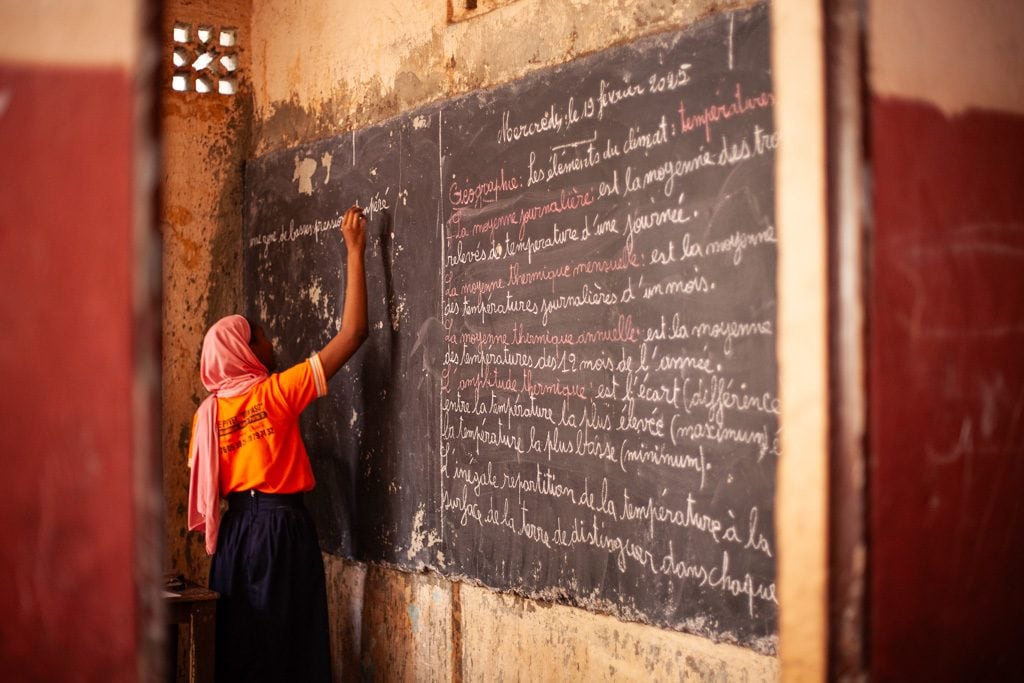 Mercredi, le 19 février 2025
Géographie : Les éléments du climat : températures
La moyenne journalière : est la moyenne des tro
relevés de température d'une journée.
La moyenne thermique mensuelle : est la moyenne
des températures journalières d'un mois.
La moyenne thermique annuelle : est la moyenne
des températures des 12 mois de l'année.
L'amplitude thermique : est l'écart (différence
entre la température la plus élevée (maximum)
la température la plus basse (minimum).
L'inégale repartition de la température à la
surface de la terre de distinguer dans chaque
une zone de basses pression